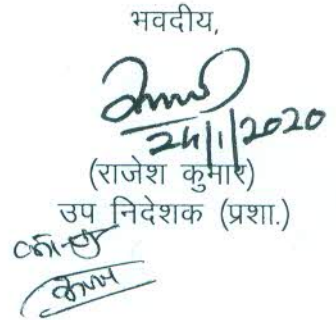 भवदीय,
24/1/2020
(राजेश कुमार)
उप निदेशक (प्रशा.)